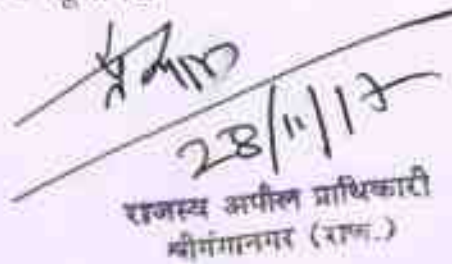 28/11/17
राजस्व अपील प्राधिकारी
श्रीगंगानगर (राज.)